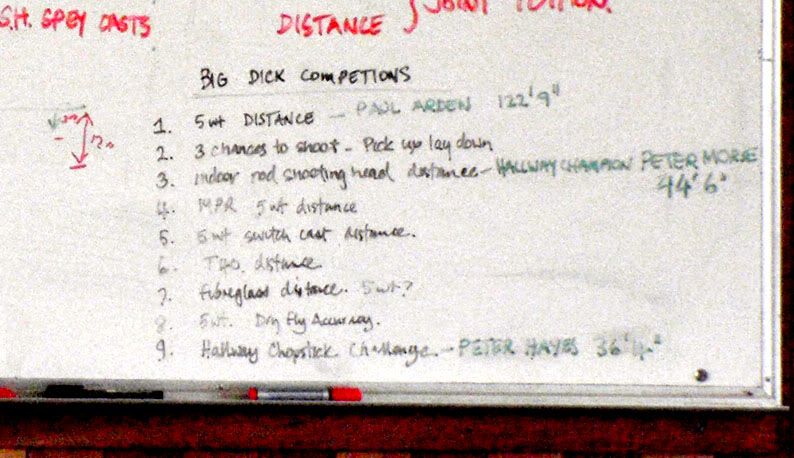 S.H. SPEY CASTS
DISTANCE } JOINT TUITION.
BIG DICK COMPETIONS
1. 5wt DISTANCE - PAUL ARDEN 122'9"
2. 3 chances to shoot - Pick up lay down
3. Indoor rod shooting head distance - HALLWAY CHAMPION PETER MORSE
44'6"
4. MPR 5wt distance
5. 5wt switch cast distance.
6. T&O. distance
7. fibreglass distance. 5wt?
8. 5wt. Dry fly Accuracy.
9. Hallway Chopstick Challenge - PETER HAYES 36'4"